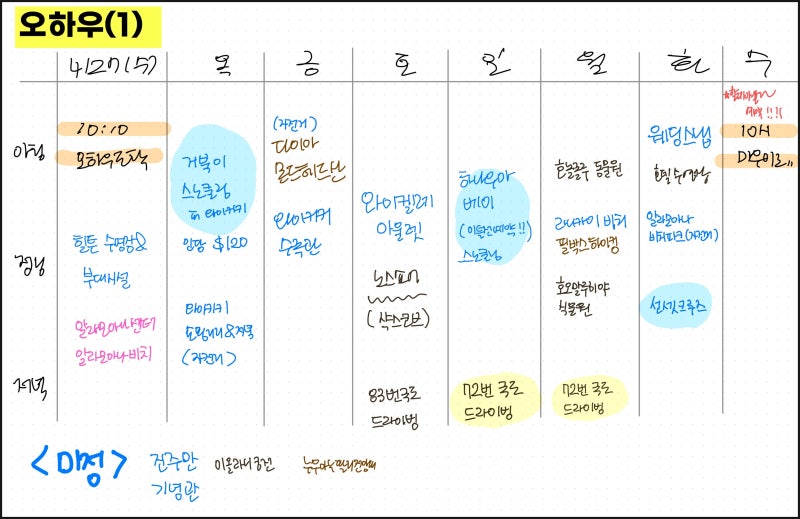 오하우(1)
4/27(수) 목 금 토 일 월 화 수
아침
10:10
오하우도착
힐튼 수영장&
부대시설
알라모아나센터
알라모아나비치
거북이
스노쿨링
in 와이키키
인당 $120
와이키키
(자전거)
(자전거)
다이아
몬드헤드산
와이키키
수족관
와이켈레
아울렛
노스쇼어
(샥스코브)
83번국도
드라이빙
하나우마
베이
(이틀전예약!!)
스노쿨링
72번 국도
드라이빙
호놀룰루 동물원
라니카이 비치
필박스하이킹
호오말루히아
식물원
72번 국도
드라이빙
웨딩스냅
호텔 수영장
알라모아나
비치파크(자전거)
선셋크루즈
10시
마우이로!!
점심
저녁
<미정>
진주만
기념관